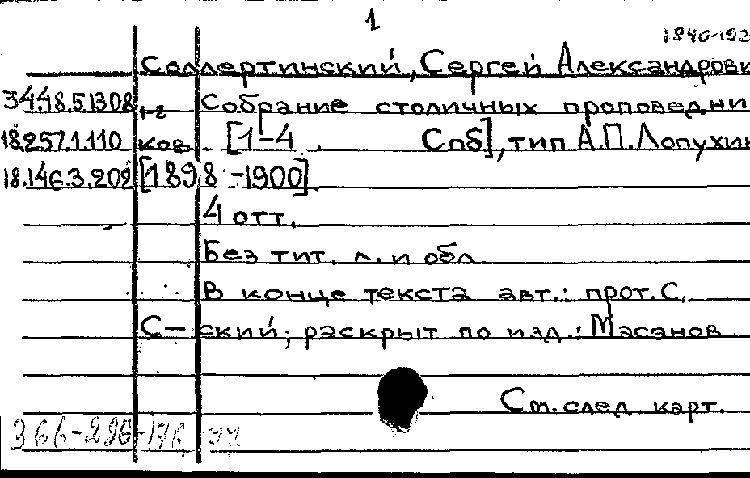 1
1846-192
Соллертинский, Сергей Александрови
3448.5.1308 1-г Собрание столичных проповедни
18.257.1.110 ков. [1-4 . Спб], тип А.П.Лопухин
18.146.3.209 [1898-1900]
4 отт.
Без тит. л. и обл.
В конце текста авт.: прот. С.
С-ский; раскрыт по изд.: Масанов
См. след. карт.